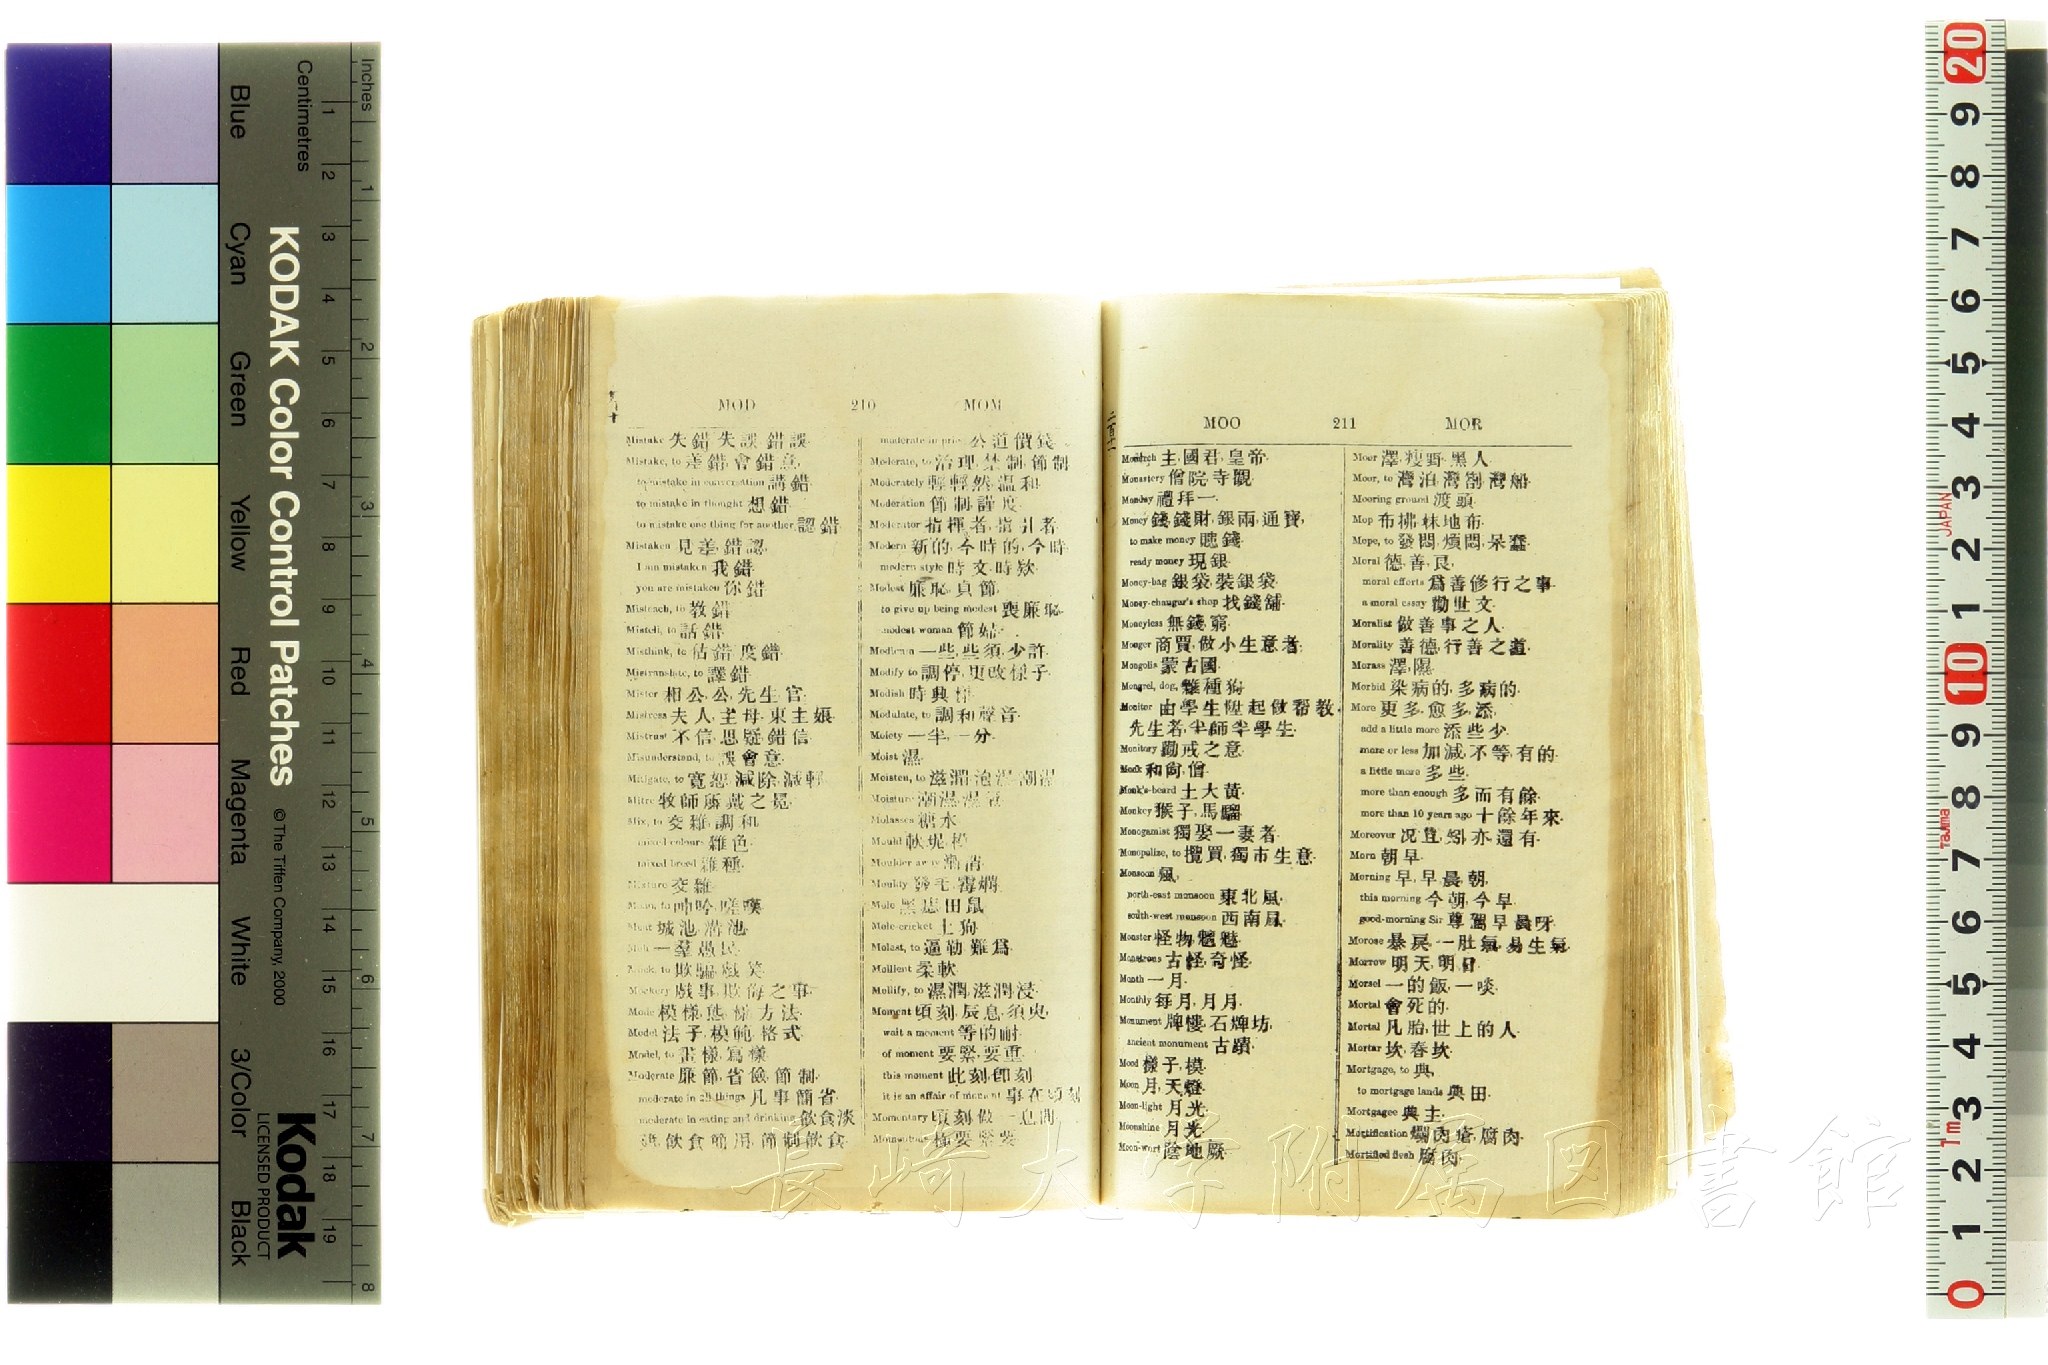 Inches
Centimetres
KODAK Color Control Patches
© The Tiffen Company, 2000
Kodak
LICENSED PRODUCT
Blue
Cyan
Green
Yellow
Red
Magenta
White
3/Color
Black
MOD 210 MOM
Mistake 失錯,失誤,錯誤.
Mistake, to 差錯,會錯意.
to mistake in conversation 講錯.
to mistake in thought 想錯.
to mistake one thing for another, 認錯.
Mistaken 見差,錯認.
I am mistaken 我錯.
you are mistaken 你錯.
Misteach, to 教錯.
Mistell, to 話錯.
Misthink, to 估錯,度錯.
Mistranslate, to 譯錯.
Mister 相公,公,先生,官.
Mistress 夫人,主母,東主娘.
Mistrust 不信,思疑,錯信.
Misunderstand, to 誤會意.
Mitigate, to 寬恕,減除,減輕.
Mitre 牧師所戴之冕.
Mix, to 交雜,調和.
mixed colours 雜色.
mixed breed 雜種.
Mixture 交雜.
Moan, to 呻吟,嗟嘆.
Moat 城池,濠池.
Mob 一羣愚民.
Mock, to 欺騙,戲笑.
Mockery 戲事,欺侮之事.
Mode 模樣,方法.
Model 法子,模範,格式.
Model, to 畫樣,寫樣.
Moderate 廉節,省儉,節制.
moderate in all things 凡事簡省.
moderate in eating and drinking 飲食淡
飲食 用,節制飲食.
moderate in price 公道價錢.
Moderate, to 治理,禁制,節制.
Moderately 輕輕然,温和.
Moderation 節制,謹度.
Moderator 指揮者,指引者.
Modern 新的,今時的,今時.
modern style 時文,時欵.
Modest 廉恥,貞節.
to give up being modest 喪廉恥.
modest woman 節婦.
Modicum 一些,些須,少許.
Modify to 調停,更改樣子.
Modish 時典
Modulate, to 調和聲音.
Moiety 一半,一分.
Moist 濕.
Moisten, to 滋潤,泡濕,潮濕.
Moisture 潮濕,濕
Molasses 糖水.
Mould 軟坭,模
Moulder away 消
Mouldy 發毛,霉爛.
Mole 黑痣,田鼠.
Mole-cricket 土狗.
Molest, to 逼勒,難爲.
Mollient 柔軟.
Mollify, to 濕潤,滋潤,浸.
Moment 頃刻,辰息,須臾.
wait a moment 等的耐.
of moment 要緊,要重.
this moment 此刻,即刻.
it is an affair of moment 事在頃刻
Momentary 頃刻,做一息間.
Momentous 極要,緊要.
MOO 211 MOR
Monarch 主,國君,皇帝.
Monastery 僧院,寺觀.
Monday 禮拜一.
Money 錢,錢財,銀兩,通寶,
to make money 賺錢.
ready money 現銀.
Money-bag 銀袋,裝銀袋.
Money-changer's shop 找錢舖.
Moneyless 無錢,窮.
Monger 商賈,做小生意者.
Mongolia 蒙古國.
Mongrel, dog, 雜種狗.
Monitor 由學生陞起做帮教
先生者,半師半學生.
Monitory 勸戒之意.
Monk 和尙,僧.
Monk's-beard 土大黃.
Monkey 猴子,馬騮.
Monogamist 獨娶一妻者.
Monopolize, to 攬買,獨市生意.
Monsoon 風,
north-east monsoon 東北風.
south-west monsoon 西南風.
Monster 怪物,魑魅.
Monstrous 古怪,奇怪.
Month 一月.
Monthly 每月,月月.
Monument 牌樓,石牌坊.
ancient monument 古蹟.
Mood 樣子,模.
Moon 月,天燈.
Moon-light 月光.
Moonshine 月光.
Moon-wort 陰地厥.
Moor 澤,瘦野,黑人.
Moor, to 灣泊,灣劄,灣船.
Mooring ground 渡頭.
Mop 布拂,抹地布.
Mope, to 發悶,煩悶,呆蠢.
Moral 德,善,良.
moral efforts 爲善修行之事.
a moral essay 勸世文.
Moralist 做善事之人.
Morality 善德,行善之道.
Morass 澤,隰.
Morbid 染病的,多病的.
More 更多,愈多,添.
add a little more 添些少.
more or less 加減,不等,有的.
a little more 多些.
more than enough 多而有餘.
more than 10 years ago 十餘年來.
Moreover 况且,矧,亦,還有.
Morn 朝早.
Morning 早,早晨,朝,
this morning 今朝,今早.
good-morning Sir 尊駕早晨呀.
Morose 暴戾,一肚氣,易生氣.
Morrow 明天,明日.
Morsel 一的飯,一啖.
Mortal 會死的.
Mortal 凡胎,世上的人.
Mortar 坎,舂坎.
Mortgage, to 典,
to mortgage lands 典田.
Mortgagee 典主.
Mortification 爛肉瘡,腐肉.
Mortified flesh 腐肉.
長崎大学附属図書館
JAPAN
Tajima
1m